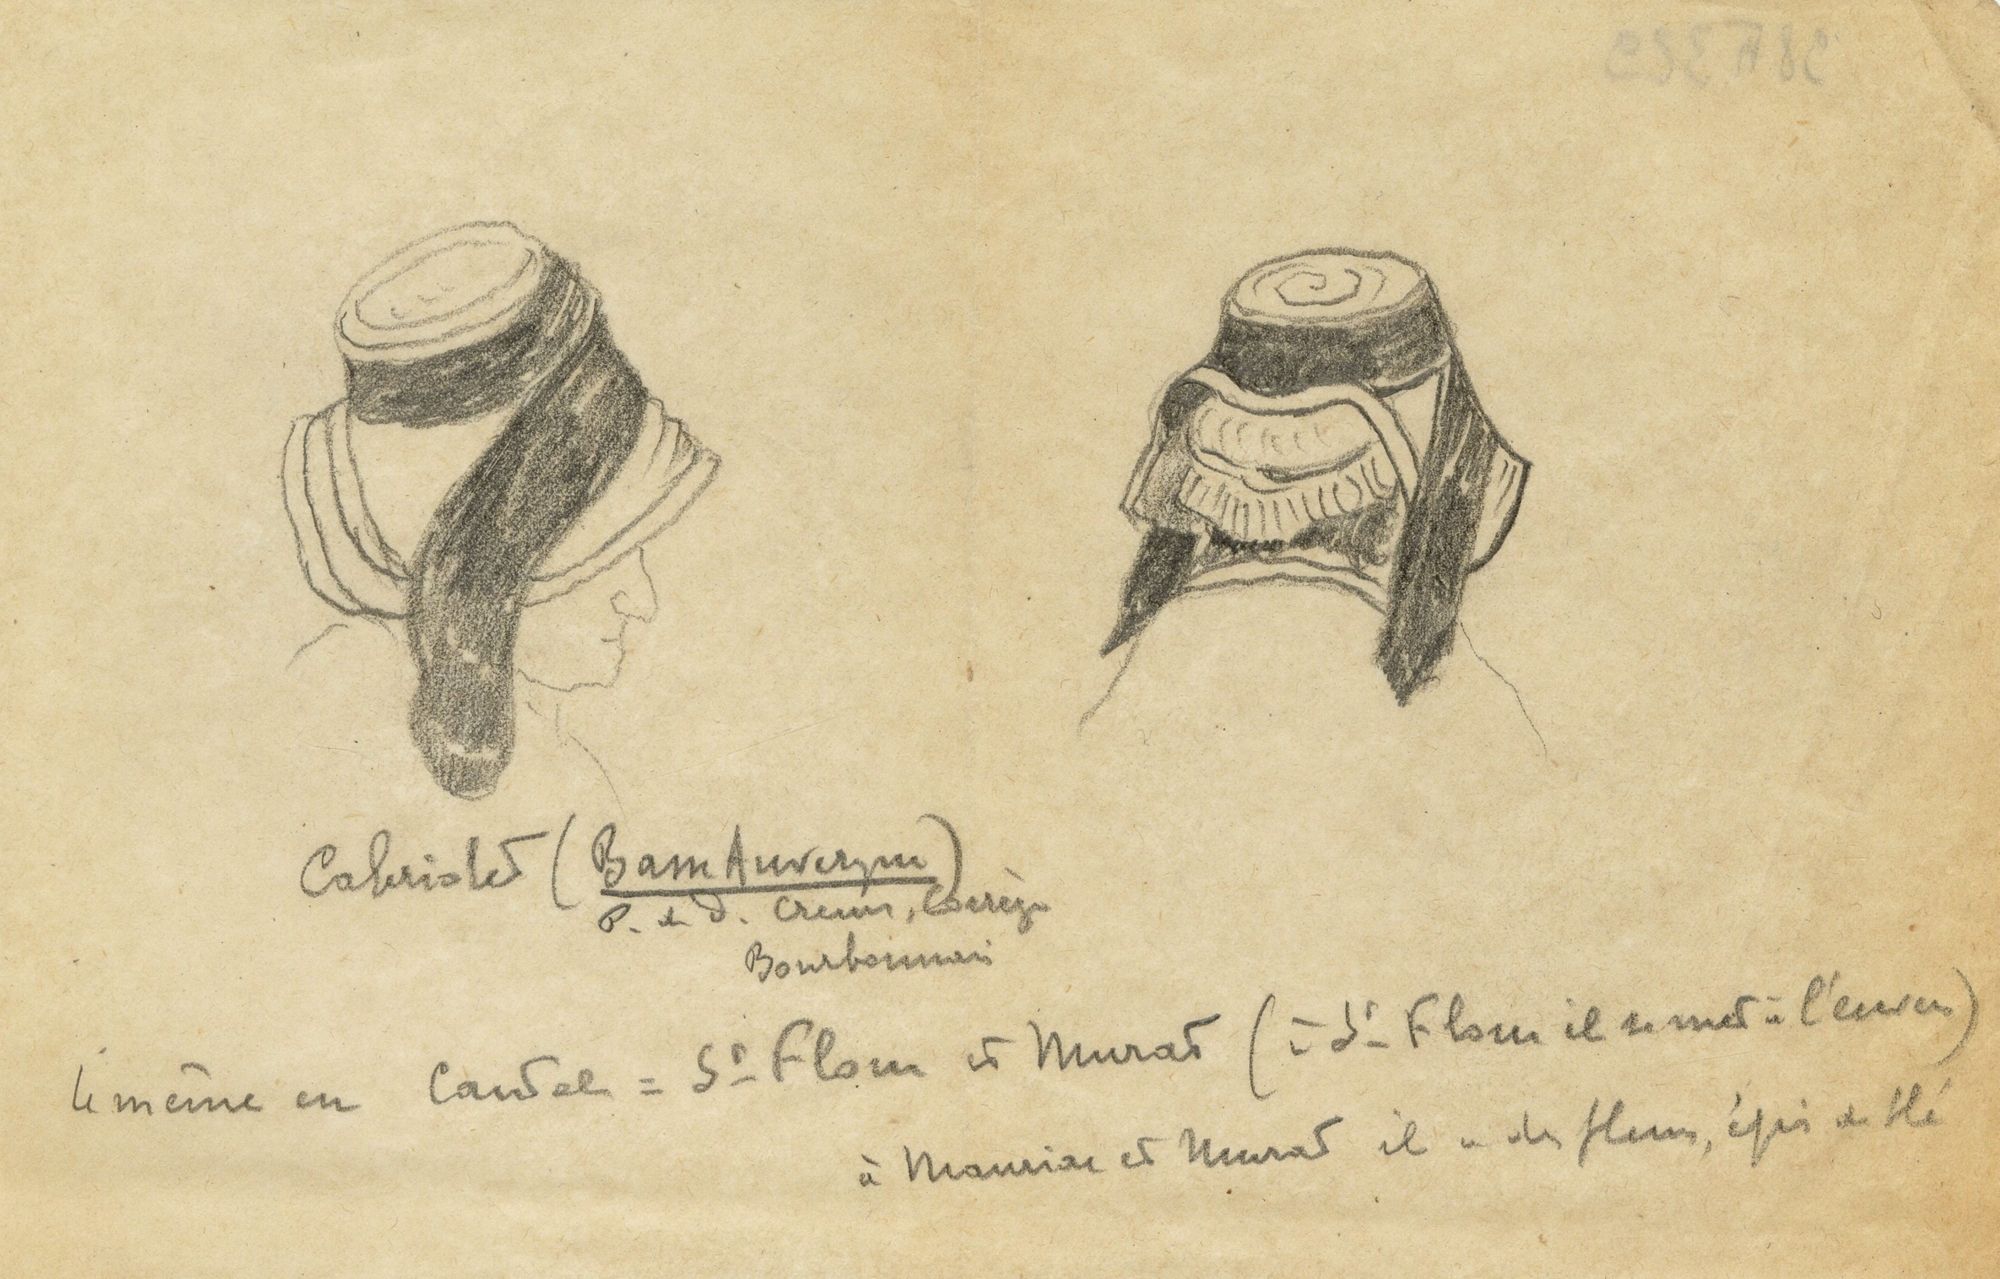 Cabriolet (Basse Auvergne)
P. de D. Creuse, Corrèze
Bourbonnais
Le même en Cantal = St Flour et Murat (à St Flour il se met à l'envers)
à Mauriac et Murat il a des fleurs, épis de blé